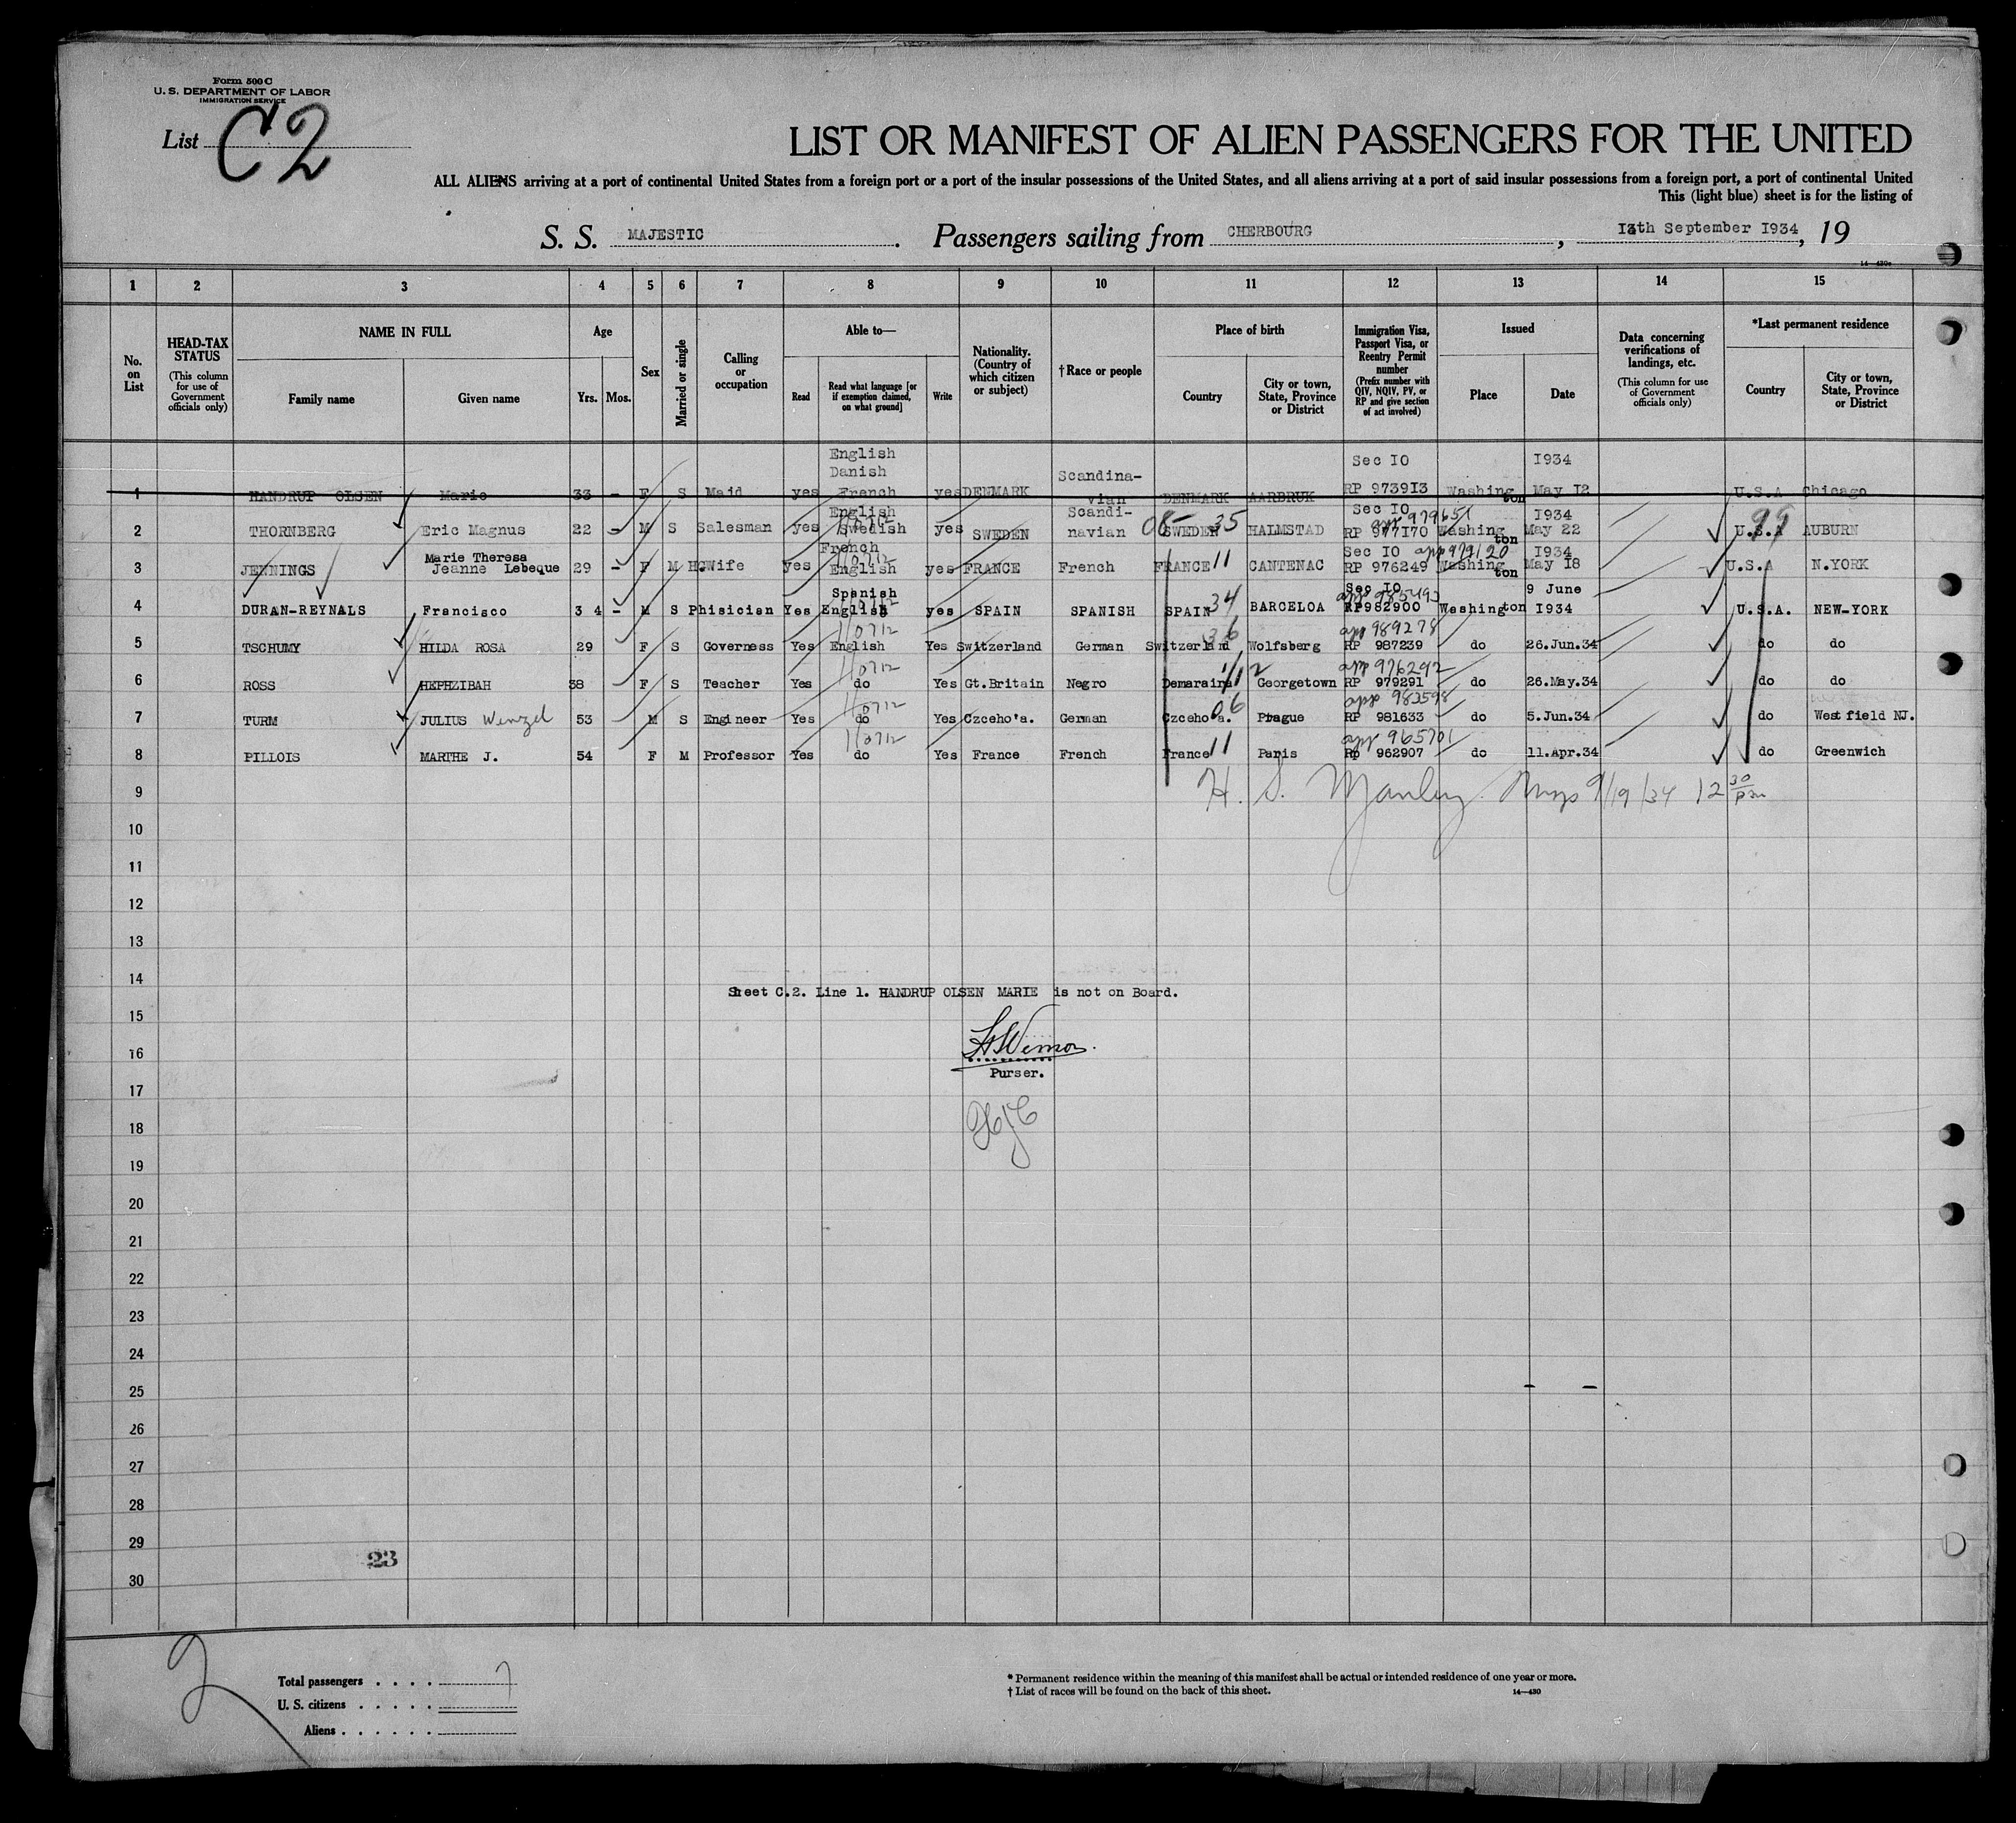 Form 500 C
U. S. DEPARTMENT OF LABOR
IMMIGRATION SERVICE
List C2
LIST OR MANIFEST OF ALIEN PASSENGERS FOR THE UNITED
ALL ALIENS arriving at a port of continental United States from a foreign port or a port of the insular possessions of the United States, and all aliens arriving at a port of said insular possessions from a foreign port, a port of continental United
This (light blue) sheet is for the listing of
S. S. MAJESTIC. Passengers sailing from CHERBOURG, 13th September 1934, 19
14—430c
1 2 3 4 5 6 7 8 9 10 11 12 13 14 15
No. on List
HEAD-TAX STATUS (This column for use of Government officials only)
NAME IN FULL Family name Given name
Age Yrs. Mos.
Sex
Married or single
Calling or occupation
Able to— Read Read what language [or if exemption claimed, on what ground] Write
Nationality. (Country of which citizen or subject)
† Race or people
Place of birth Country City or town, State, Province or District
Immigration Visa, Passport Visa, or Reentry Permit number (Prefix number with QIV, NQIV, PV, or RP and give section of act involved)
Issued Place Date
Data concerning verifications of landings, etc. (This column for use of Government officials only)
*Last permanent residence Country City or town, State, Province or District
1 HANDRUP OLSEN Marie 33 - F S Maid yes English Danish French yes DENMARK Scandina-vian DENMARK AARBRUK Sec IO RP 9739I3 Washington I934 May I2 U.S.A Chicago
2 THORNBERG Eric Magnus 22 - M S Salesman yes English Swedish yes SWEDEN Scandi-navian SWEDEN HALMSTAD Sec IO app 979651 RP 977I70 Washington I934 May 22 U.S.A AUBURN
3 JENNINGS Marie Theresa Jeanne Lebeque 29 - F M H.Wife yes French English yes FRANCE French FRANCE 11 CANTENAC Sec IO app 979120 RP 976249 Washington I934 May I8 U.S.A N.YORK
4 DURAN-REYNALS Francisco 3 4 - M S Phisician Yes Spanish English yes SPAIN SPANISH SPAIN 34 BARCELOA Sec IO app 985493 RP982900 Washington 9 June I934 U.S.A. NEW-YORK
5 TSCHUMY HILDA ROSA 29 F S Governess Yes English Yes Switzerland German Switzerland 36 Wolfsberg app 989278 RP 987239 do 26.Jun.34 do do
6 ROSS HEPHZIBAH 38 F S Teacher Yes do Yes Gt.Britain Negro Demaraira Georgetown app 976292 RP 979291 do 26.May.34 do do
7 TURM JULIUS Wenzel 53 M S Engineer Yes do Yes Czceho'a. German Czceho'a. 06 Prague app 983598 RP 981633 do 5.Jun.34 do Westfield NJ.
8 PILLOIS MARTHE J. 54 F M Professor Yes do Yes France French France 11 Paris app 965701 Rp 962907 do 11.Apr.34 do Greenwich
9 H. S. Manley 9/19/34 12 30 pm
10
11
12
13
14
Sheet C.2. Line 1. HANDRUP OLSEN MARIE is not on Board.
15
16
Purser.
17
18
19
20
21
22
23
24
25
26
27
28
29
23
30
2
Total passengers . . . . 7
U. S. citizens . . . . .
Aliens . . . . . .
* Permanent residence within the meaning of this manifest shall be actual or intended residence of one year or more.
† List of races will be found on the back of this sheet.
14—430